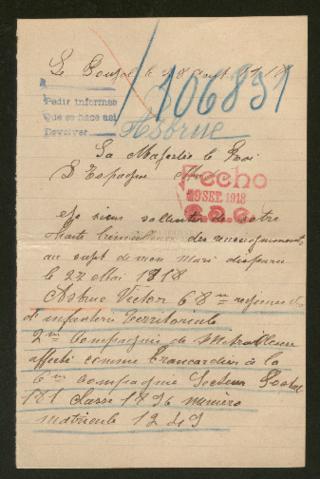 Le 28 Août 1918
106831
Pedir informes
Que se hace así
Devolver
Asbrue
Sa Majesté le Roi
D'Espagne
Fecho
19 SET. 1918
Je viens solliciter de votre
Haute bienveillance des renseignements
au sujet de mon mari disparu
le 27 Mai 1918
Asbrue Victor 68me régiment
d'infanterie Territoriale
2me Compagnie de Mitrailleuse
affecté comme Brancardier à la
6me Compagnie Secteur Postal
181 Classe 1896 numéro
matricule 1249